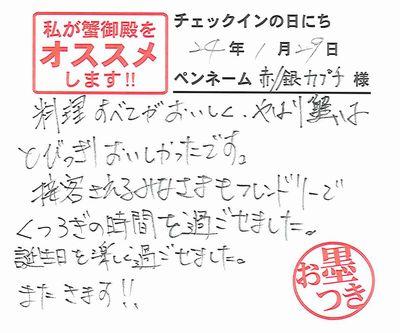 私が蟹御殿を
オススメ
します!!
チェックインの日にち
24年1月29日
ペンネーム 赤/銀カプチ 様
料理すべてがおいしく、やはり蟹は
とびっきりおいしかったです。
接客されるみなさまもフレンドリーで
くつろぎの時間を過ごせました。
誕生日を楽しく過ごせました。
またきます!!
お墨つき